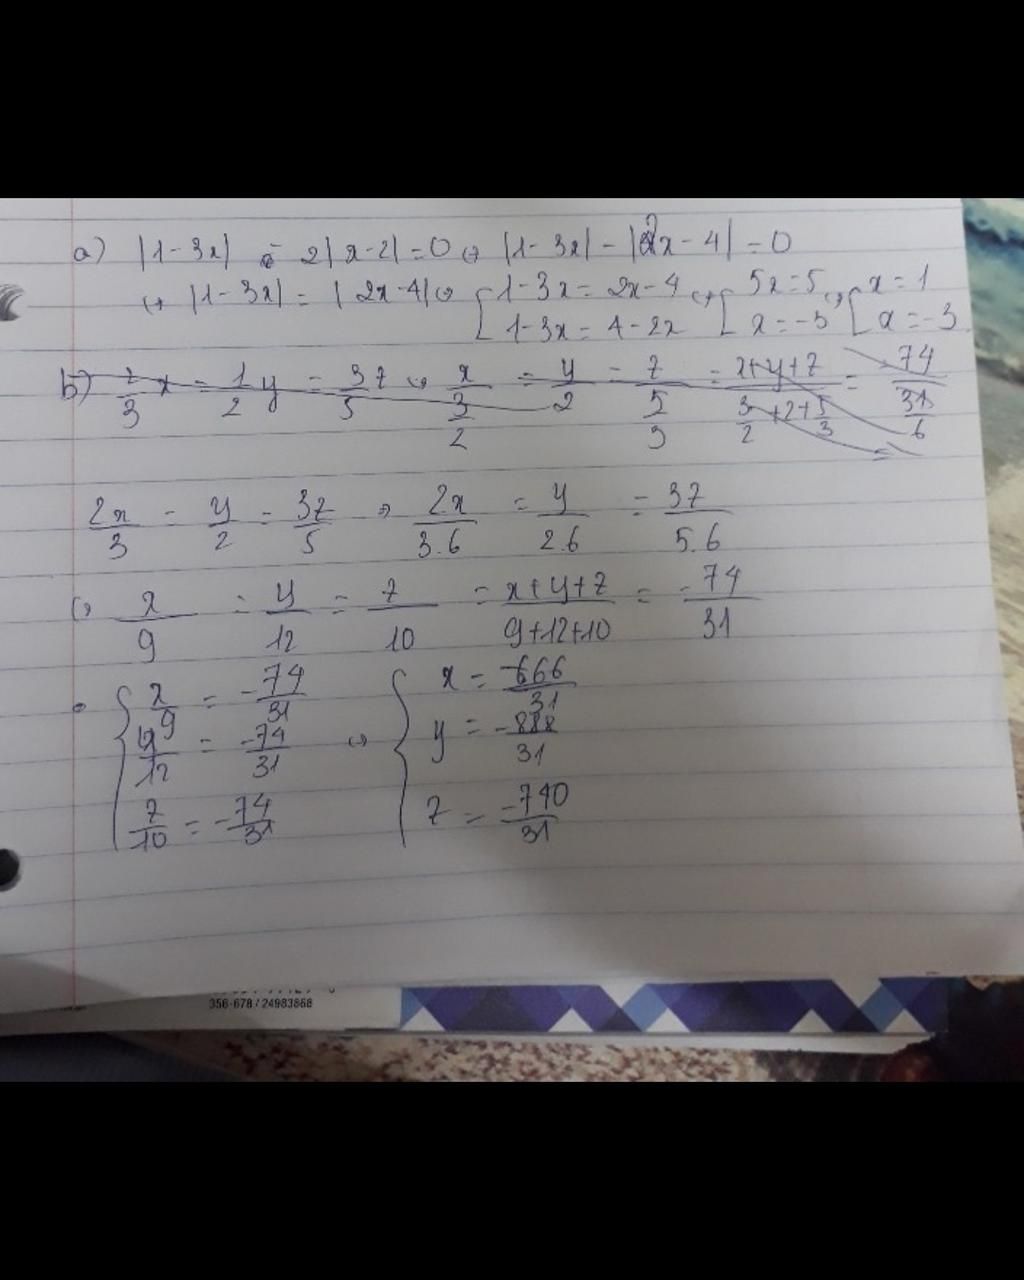 a) |1-3x| = 2|x-2| = 0 ⇔ |1-3x| - |2x-4| = 0
⇔ |1-3x| = |2x-4| ⇔ [1-3x = 2x-4 ⇔ [5x=5 ⇔ [x=1
1-3x = 4-2x x=-3 x=-3
b) 2/3 x = 1/2 y = 3z/5 ⇔ x/(3/2) = y/2 = z/(5/3) = (x+y+z)/(3/2+2+5/3) = -74/(31/6)
2x/3 = y/2 = 3z/5 ⇒ 2x/3.6 = y/2.6 = 3z/5.6
⇔ x/9 = y/12 = z/10 = (x+y+z)/(9+12+10) = -74/31
{x/9 = -74/31 ⇔ {x = -666/31
y/12 = -74/31 y = -888/31
z/10 = -74/31 z = -740/31
356-678 / 24983868